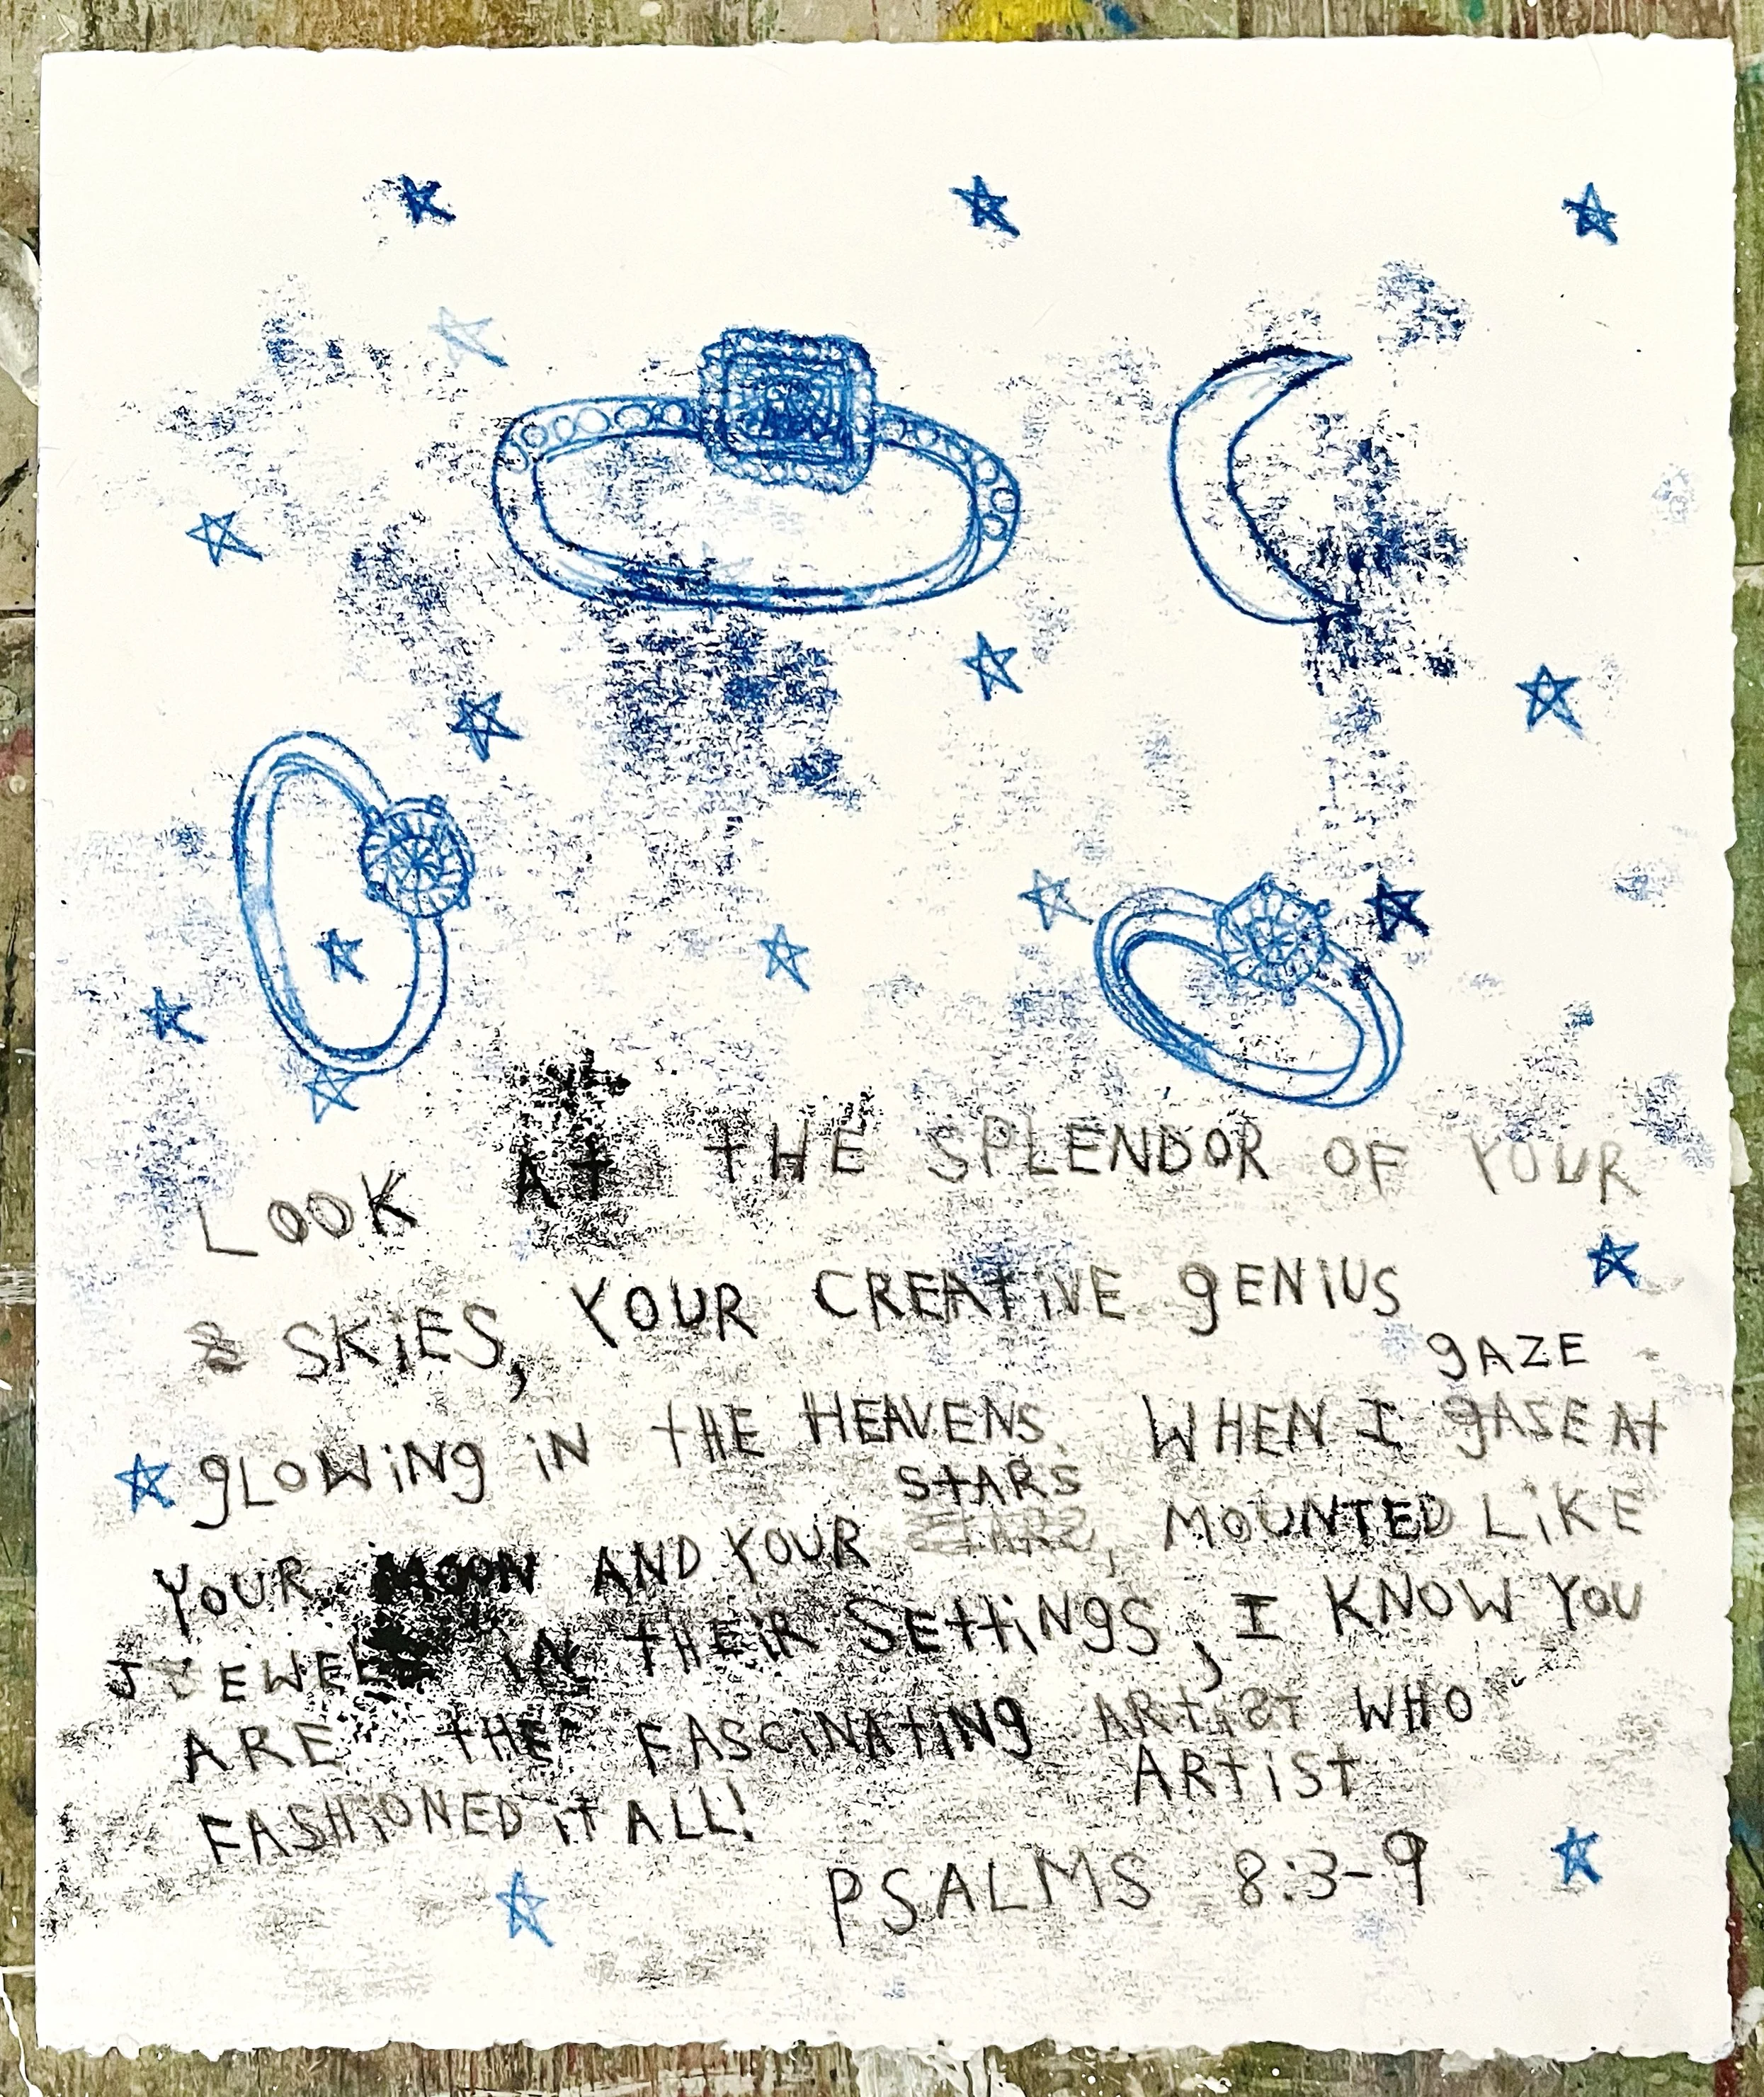 LOOK At tHE SPLENDOR OF YOUR
SKiES, YOUR CREAtiVE gENiUS
gAZE
gLOWiNg iN tHE HEAVENS. WHEN I gAZE At
StARS
YOUR MOON AND YOUR StARS, MOUNTED LiKE
JEWELS iN tHEiR SEttiNgS, I KNOW YOU
ARE tHE FASCiNAtiNg ARtiSt WHO
ARtiSt
FASHiONED it ALL!
PSALMS 8:3-9